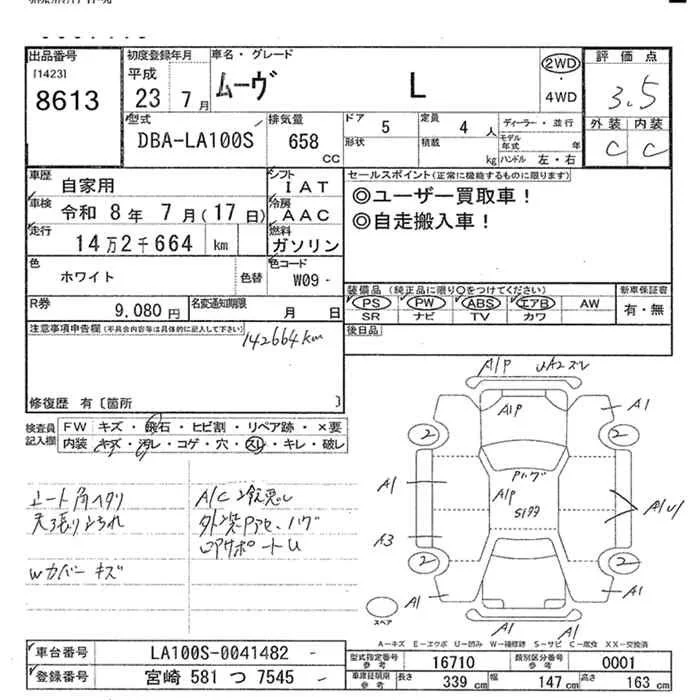 出品番号
[1423]
8613
初度登録年月
平成
23 7月
車名・グレード
ムーヴ L
2WD
・
4WD
評価点
3.5
外装 内装
C C
型式
DBA-LA100S
排気量
658
CC
ドア
5
定員
4 人
形状
積載
kg
ディーラー・並行
モデル
年式 年
ハンドル 左・右
車歴
自家用
車検
令和 8年 7月(17日)
走行
14万2千664 km
シフト
IAT
冷房
AAC
燃料
ガソリン
色
ホワイト
色替
色コード
W09 -
セールスポイント(正常に機能するものに限ります)
◎ユーザー買取車!
◎自走搬入車!
R券
9,080円
名変通知期限
月 日
装備品 (純正品に限り○をつけてください)
PS PW ABS エアB AW
SR ナビ TV カワ
新車保証書
有・無
後日品
注意事項申告欄(不具合内容等は具体的に記入して下さい)
142664km
修復歴 有〔箇所 〕
検査員
記入欄
FW キズ・飛石・ヒビ割・リペア跡・×要
内装 キズ・汚レ・コゲ・穴・スレ・キレ・破レ
天張りよごれ
Wカバー キズ
A/P
A/P
A1
2
2
A1
A/P
A3
2
2
A1
A1
A1
A1
スペア
A-キズ E-エクボ U-凹み W-補修跡 S-サビ C-腐食 XX-交換済
車台番号
LA100S-0041482
登録番号
宮崎 581 つ 7545
型式指定番号
参考
16710
類別区分番号
参考
0001
車庫証明用
参考
長さ 339 cm
幅 147 cm
高さ 163 cm